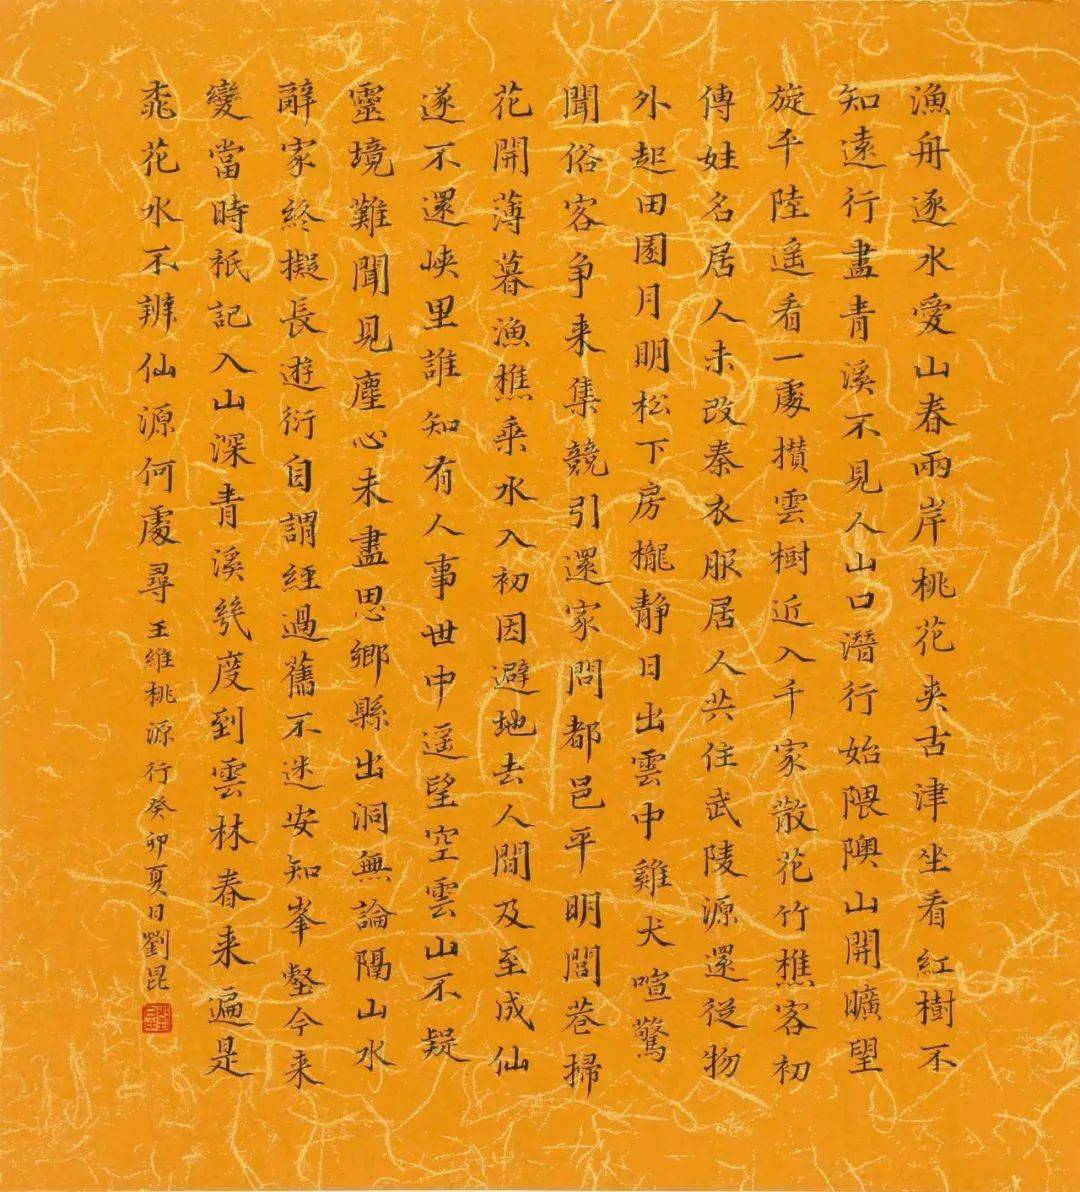 漁舟逐水愛山春兩岸桃花夾古津坐看紅樹不
知遠行盡青溪不見人山口潛行始隈隩山開曠望
旋平陸遥看一處攢雲樹近入千家散花竹樵客初
傳姓名居人未改秦衣服居人共住武陵源還從物
外起田園月明松下房櫳静日出雲中雞犬喧驚
聞俗客争来集競引還家問都邑平明閭巷掃
花開薄暮漁樵乘水入初因避地去人間及至成仙
遂不還峽里誰知有人事世中遥望空雲山不疑
靈境難聞見塵心未盡思鄉縣出洞無論隔山水
辭家終擬長遊衍自謂經過舊不迷安知峯壑今来
變當時衹記入山深青溪幾度到雲林春来遍是
桃花水不辨仙源何處尋王維桃源行癸卯夏日劉昆